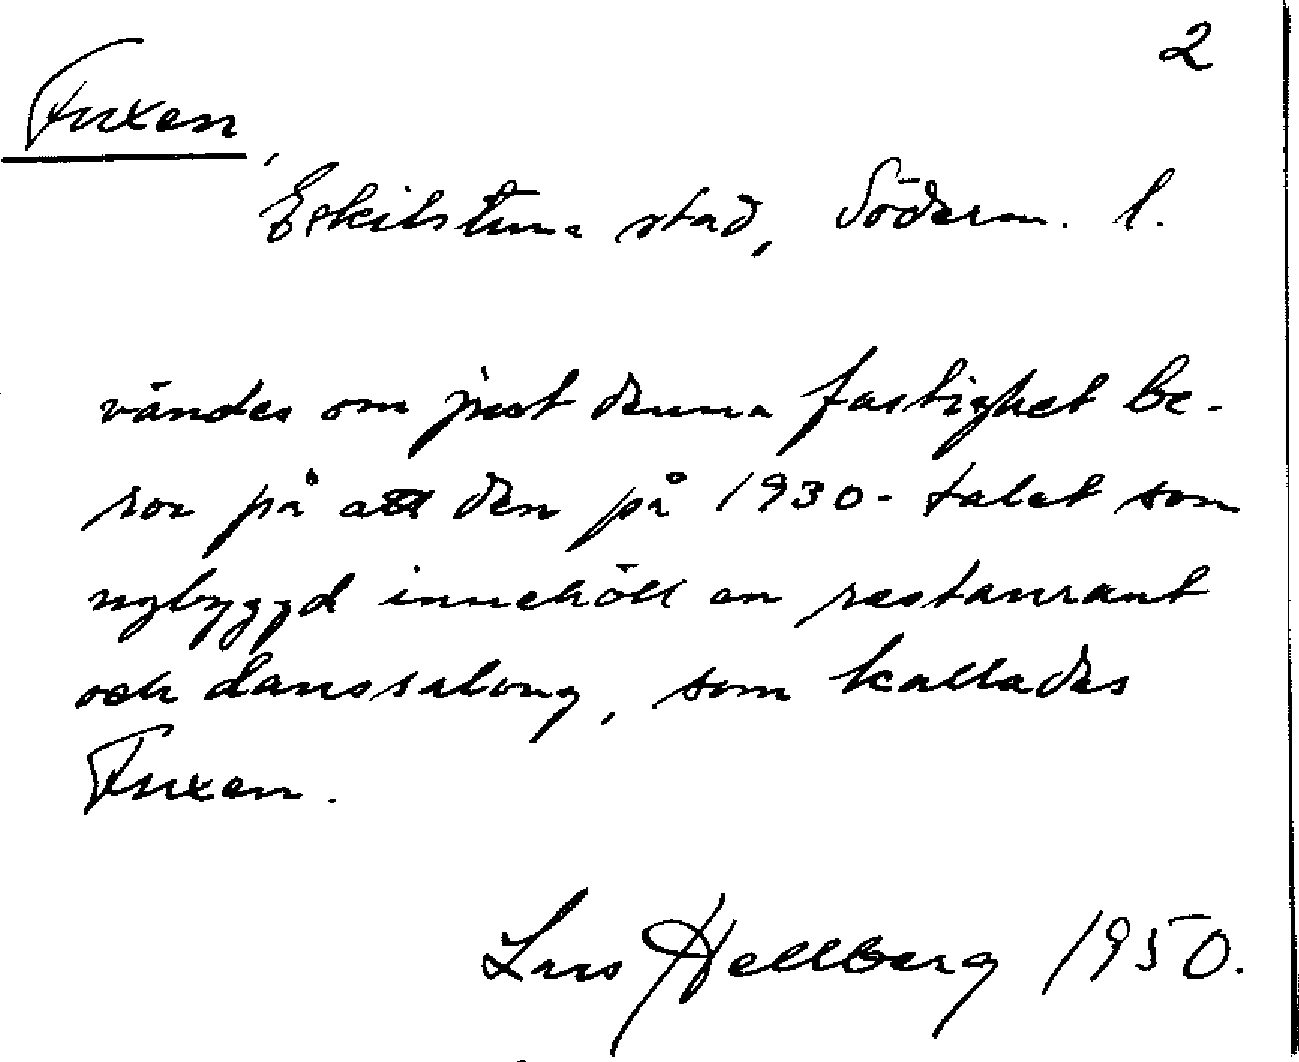 2
Fuxen,
Eskilstuna stad, Söderm. l.
vändes om just denna fastighet be-
ror på att den på 1930-talet som
nybyggd innehöll en restaurant
och danssalong, som kallades
Fuxen.
Lars Hellberg 1950.